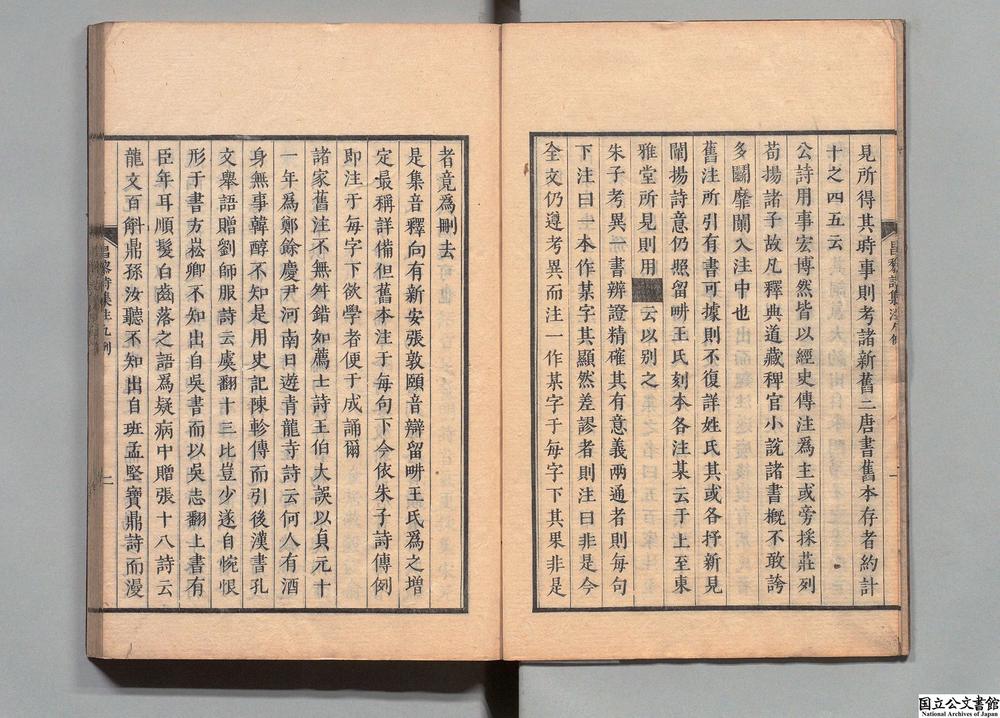 見所得其時事則考諸新舊二唐書舊本存者約計
十之四五云
公詩用事宏博然皆以經史傳注爲主或旁採莊列
荀揚諸子故凡釋典道藏稗官小說諸書槪不敢誇
多鬭靡闌入注中也
舊注所引有書可據則不復詳姓氏其或各抒新見
闡揚詩意仍照留畊王氏刻本各注某云于上至東
雅堂所見則用 云以別之
朱子考異一書辨證精確其有意義兩通者則每句
下注曰一本作某字其顯然差謬者則注曰非是今
全文仍遵考異而注一作某字于每字下其果非是
者竟爲刪去
是集音釋向有新安張敦頤音辯留畊王氏爲之增
定最稱詳備但舊本注于每句下今依朱子詩傳例
即注于每字下欲學者便于成誦爾
諸家舊注不無舛錯如薦士詩王伯大誤以貞元十
一年爲鄭餘慶尹河南日遊青龍寺詩云何人有酒
身無事韓醇不知是用史記陳軫傳而引後漢書孔
文舉語贈劉師服詩云虞翻十三比豈少遂自惋恨
形于書方崧卿不知出自吳書而以吳志翻上書有
臣年耳順髮白齒落之語爲疑病中贈張十八詩云
龍文百斛鼎孫汝聽不知出自班孟堅寶鼎詩而漫
昌黎詩集注凡例
二
国立公文書館
National Archives of Japan